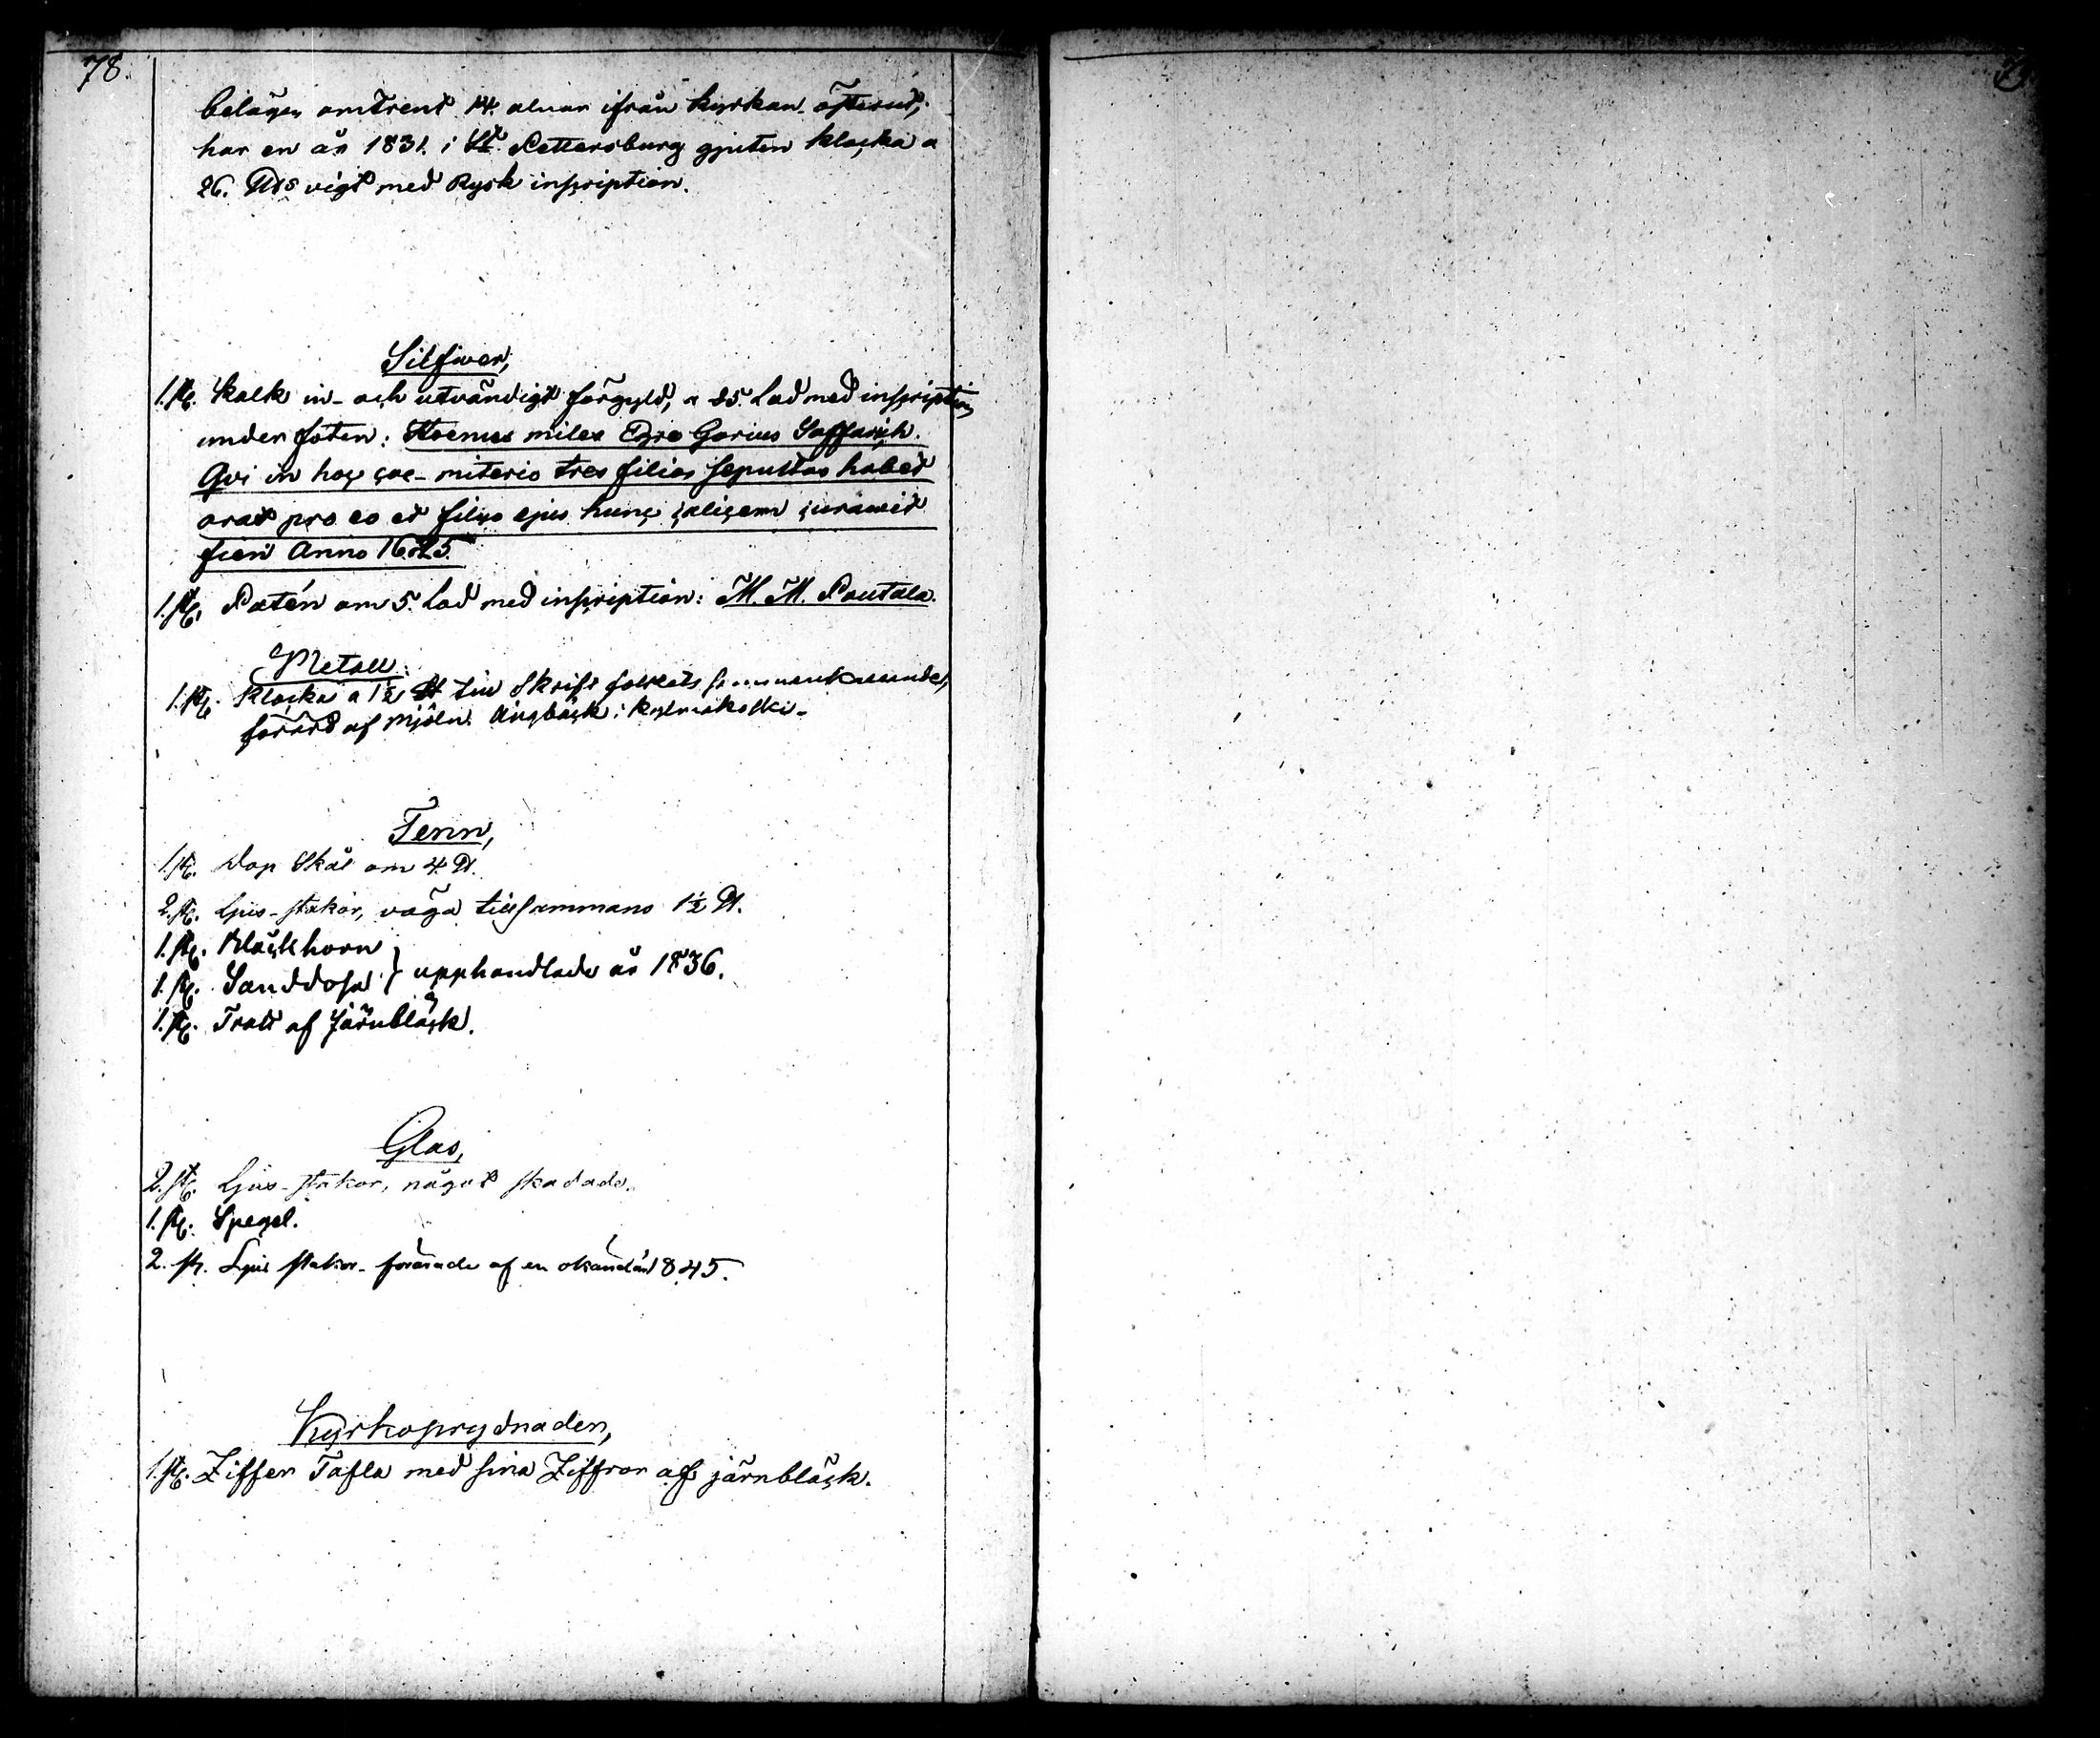 78.
belägen omtrent 14. alnar ifrån kyrkan österut,
har en år 1831. i St. Pettersburg gjuten klocka a
26. vigt med Rysk inscription.
Silfwer,
1. st. Kalk in- och utvändigt förgyld, a 25. Lod med inscription
under foten: miles Egre Gorius
Qvi in hoc coe-miterio tres filios sepultos habet
orat pro eo et filio ejus hunc calicem curawit
fieri Anno 1625.
1. st. Patén om 5. Lod med inscription: M. M. Pautala.
Metall:
1. st. Klocka a 1½ till Skrift folkets
förärd af Mjöln. i
Tenn,
1 st. Dop Skål om 4. ℔.
2. st. Ljus-stakar, väga tillsammans 1½ ℔.
1. st. Bläckhorn
1. st. Sanddosa } upphandlade år 1836.
1. st. Tratt af Järnbläck.
Glas,
2. st. Ljus-stakar, något skadade.
1. st. Spegel.
2. st. Ljus stakar förärade af en okänd år 1845.
Kyrkoprydnaden,
1. st. Ziffer Tafla med sina Ziffror af järnbläck.